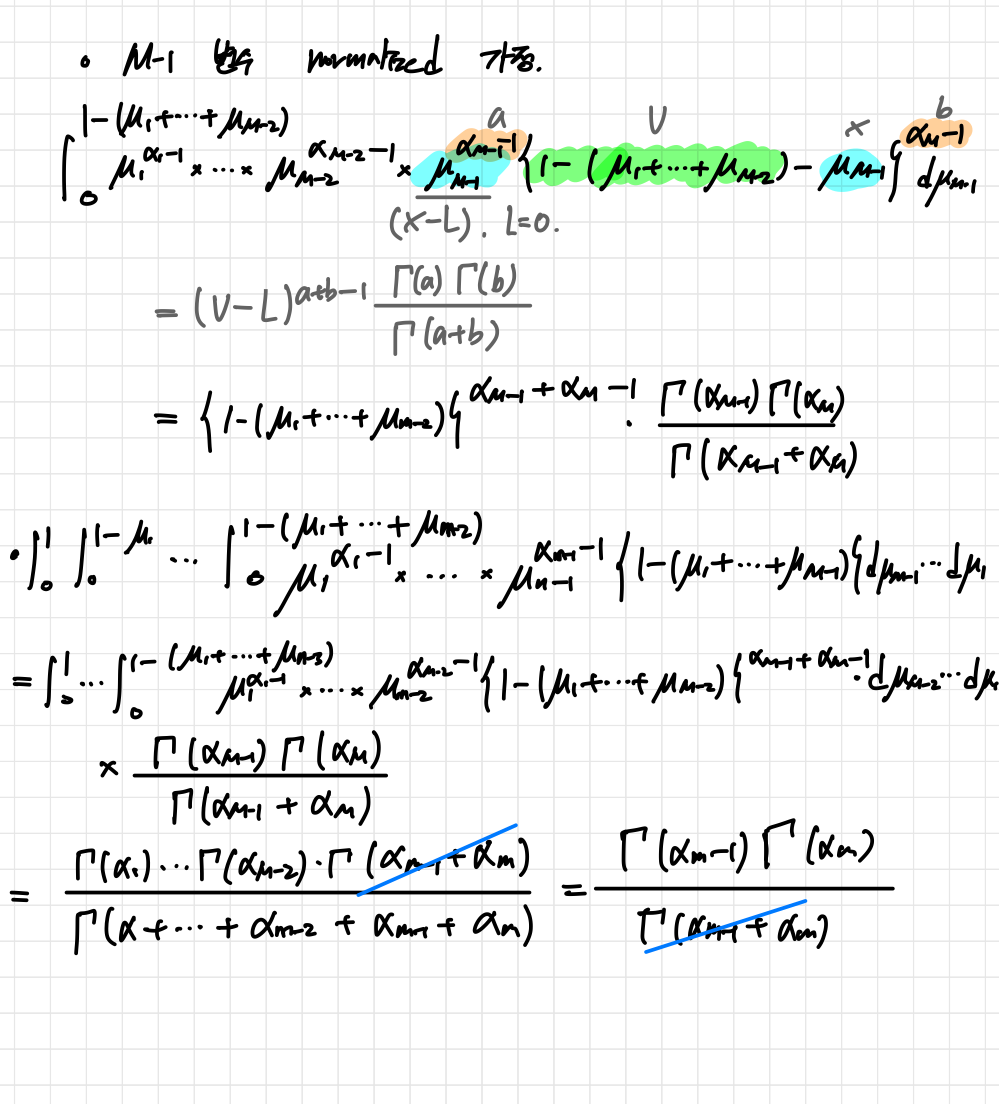 • M-1 변수 normalized 가정.
∫₀^{1-(μ₁+⋯+μ_{M-2})} μ₁^{α₁-1} × ⋯ × μ_{M-2}^{α_{M-2}-1} × μ_{M-1}^{α_{M-1}-1} {1-(μ₁+⋯+μ_{M-2})-μ_{M-1}}^{α_M-1} dμ_{M-1}
a U x b
(x-L). L=0.
= (U-L)^{a+b-1} Γ(a)Γ(b) / Γ(a+b)
= {1-(μ₁+⋯+μ_{M-2})}^{α_{M-1}+α_M-1} · Γ(α_{M-1})Γ(α_M) / Γ(α_{M-1}+α_M)
• ∫₀^1 ∫₀^{1-μ₁} ⋯ ∫₀^{1-(μ₁+⋯+μ_{M-2})} μ₁^{α₁-1} × ⋯ × μ_{M-1}^{α_{M-1}-1} {1-(μ₁+⋯+μ_{M-1})} dμ_{M-1}⋯dμ₁
= ∫₀^1 ⋯ ∫₀^{1-(μ₁+⋯+μ_{M-3})} μ₁^{α₁-1} × ⋯ × μ_{M-2}^{α_{M-2}-1} {1-(μ₁+⋯+μ_{M-2})}^{α_{M-1}+α_M-1} · dμ_{M-2}⋯dμ₁
× Γ(α_{M-1})Γ(α_M) / Γ(α_{M-1}+α_M)
= Γ(α₁)⋯Γ(α_{M-2})·Γ(α_{M-1}+α_M) / Γ(α+⋯+α_{M-2}+α_{M-1}+α_M) = Γ(α_M-1)Γ(α_M) / Γ(α_{M-1}+α_M)